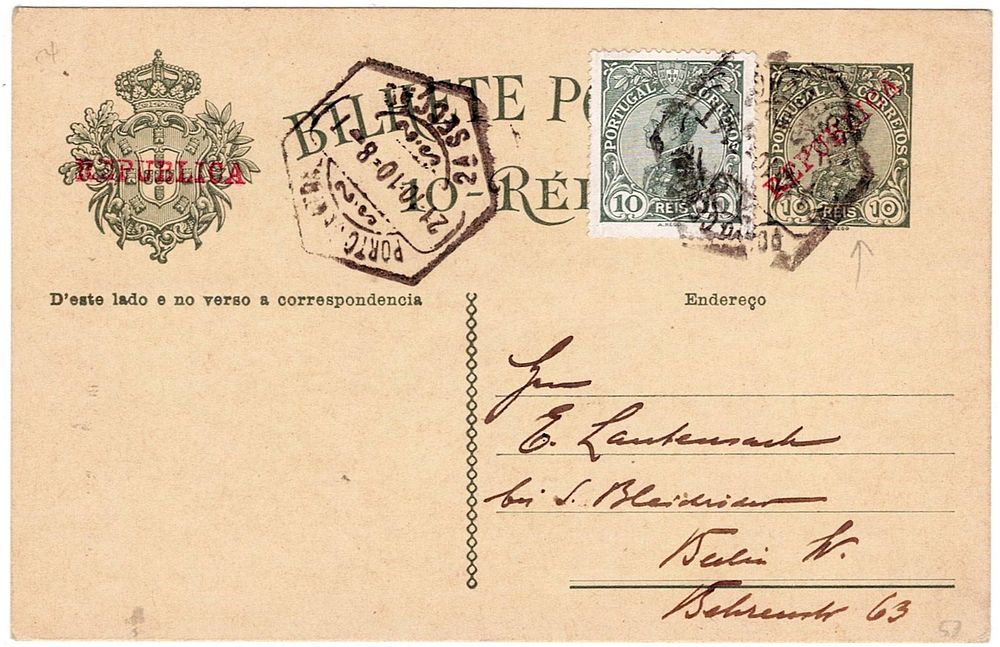 BILHETE PO
REPUBLICA
10-RÉI
2A SECS
21-10-8
PORTO
PORTUGAL CORREIOS
10 REIS 10
PORTUGAL CORREIOS
REPUBLICA
10 REIS 10
D'este lado e no verso a correspondencia
Endereço
Hrn
E. Lautensach
bei S. Bleichröder
Berlin W.
Behrenstr 63